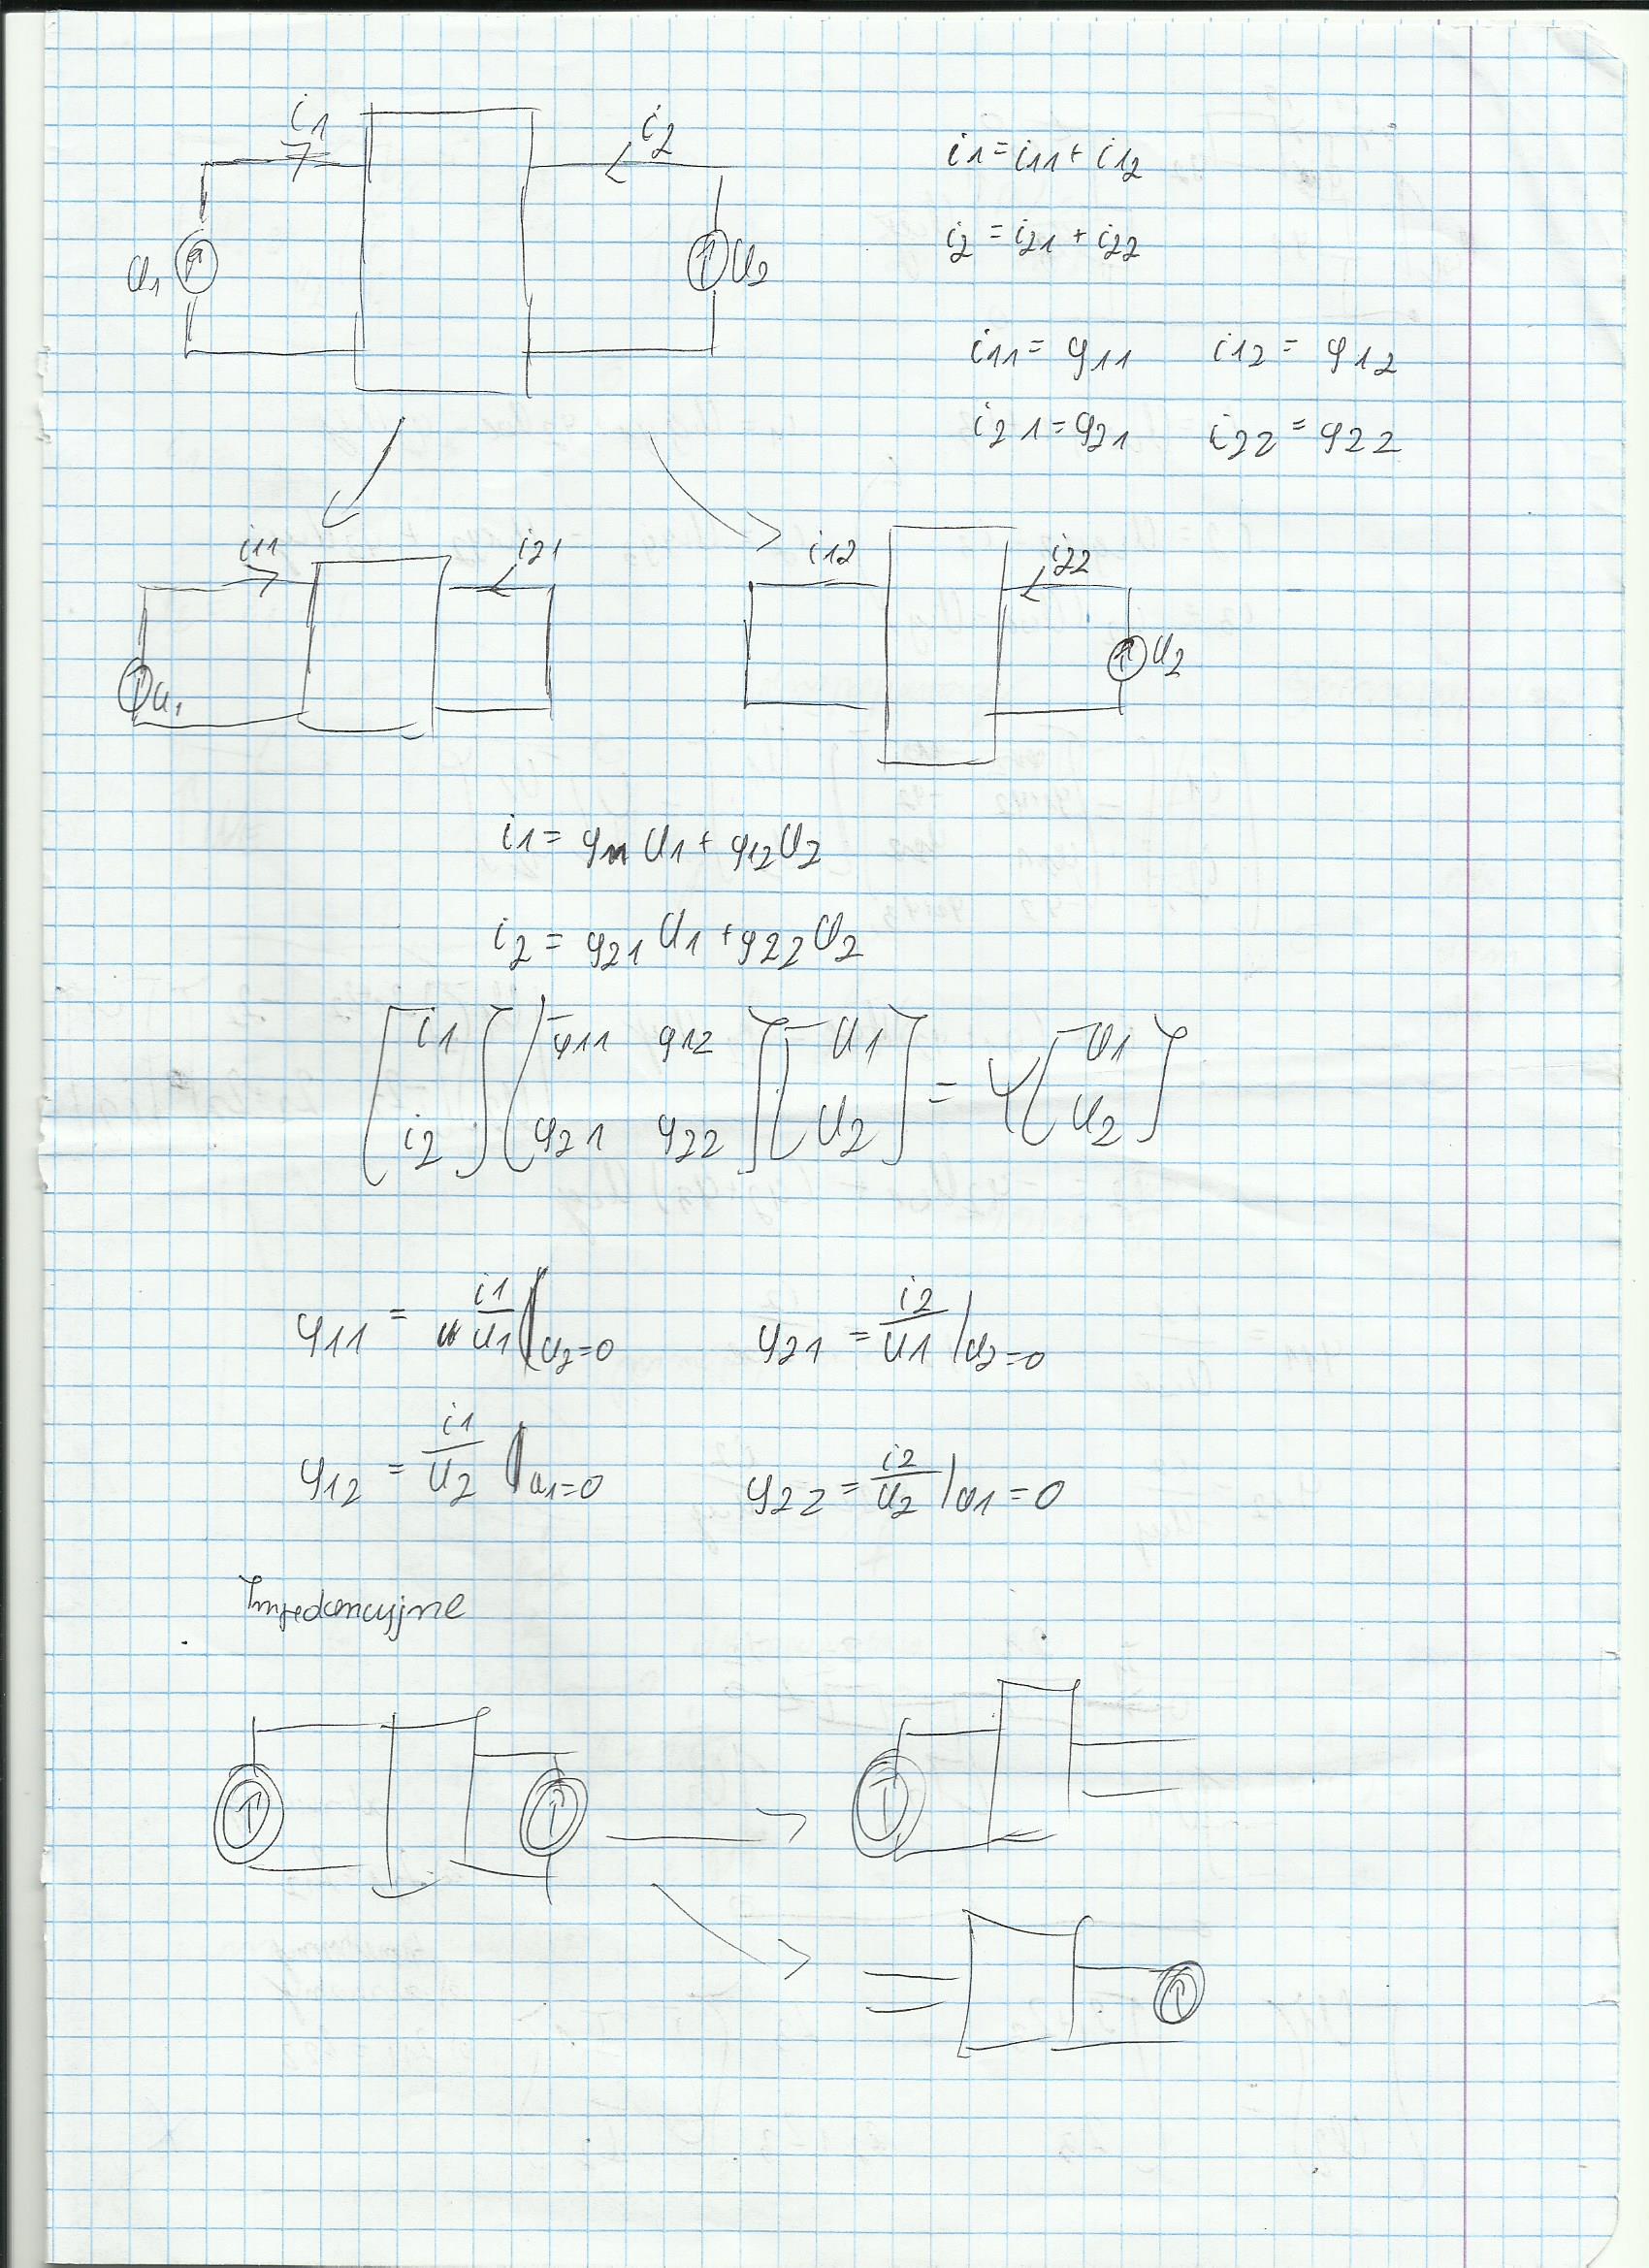 i1
i2
U1
U2
i1 = i11 + i12
i2 = i21 + i22
i11 = y11 i12 = y12
i21 = y21 i22 = y22
i11 i21
i12 i22
U1
U2
i1 = y11 U1 + y12 U2
i2 = y21 U1 + y22 U2
[i1 [y11 y12 [U1 = Y [U1
i2] y21 y22] U2] U2]
y11 = i1/U1 | U2=0 y21 = i2/U1 | U2=0
y12 = i1/U2 | U1=0 y22 = i2/U2 | U1=0
Impedancyjne